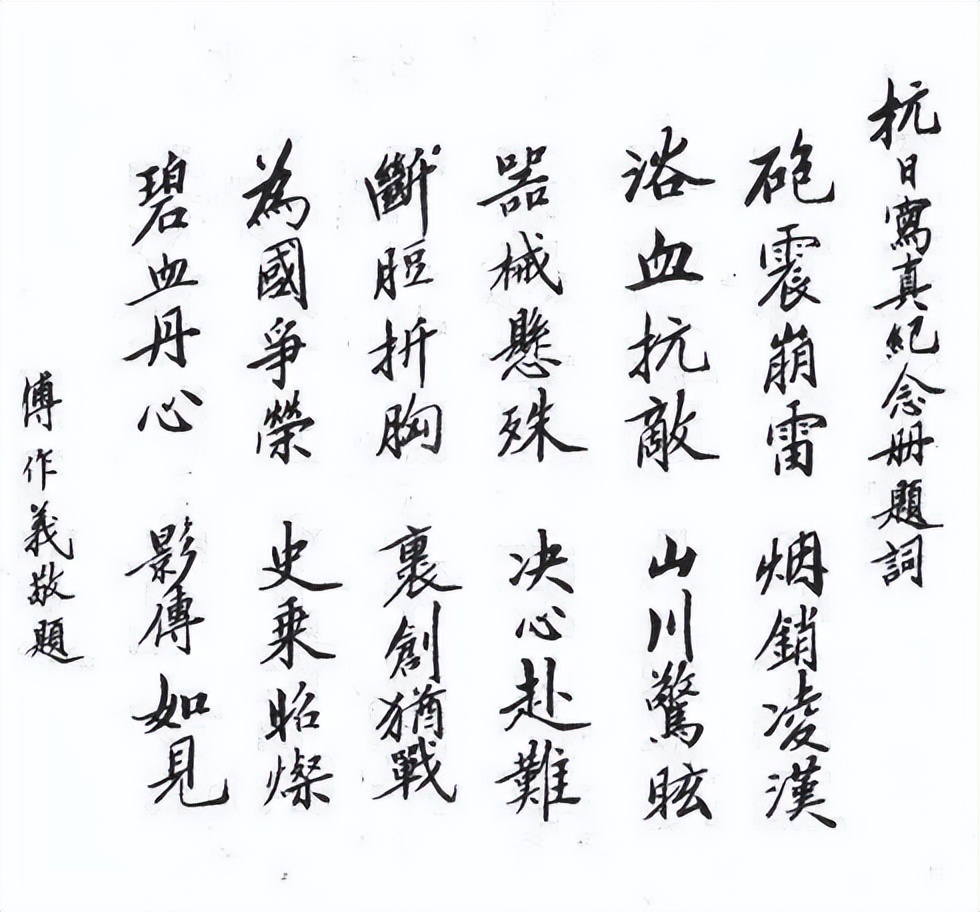 抗日寫真紀念册題詞
砲震崩雷 烟銷凌漢
浴血抗敵 山川驚眩
器械懸殊 决心赴難
斷脰折胸 裹創猶戰
為國爭榮 史乘昭燦
碧血丹心 影傳如見
傅作義敬題